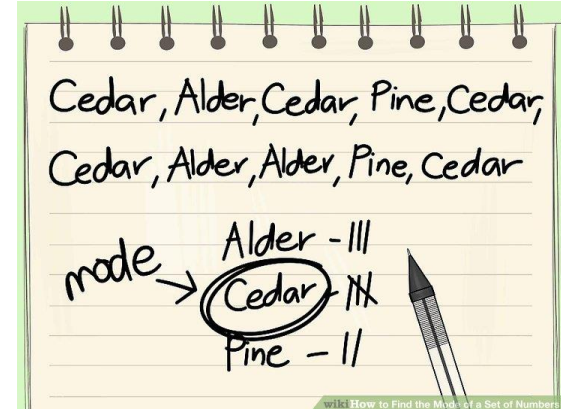 Cedar, Alder, Cedar, Pine, Cedar,
Cedar, Alder, Alder, Pine, Cedar
mode
Alder - |||
Cedar - 𝍸
Pine - ||
wikiHow to Find the Mode of a Set of Numbers